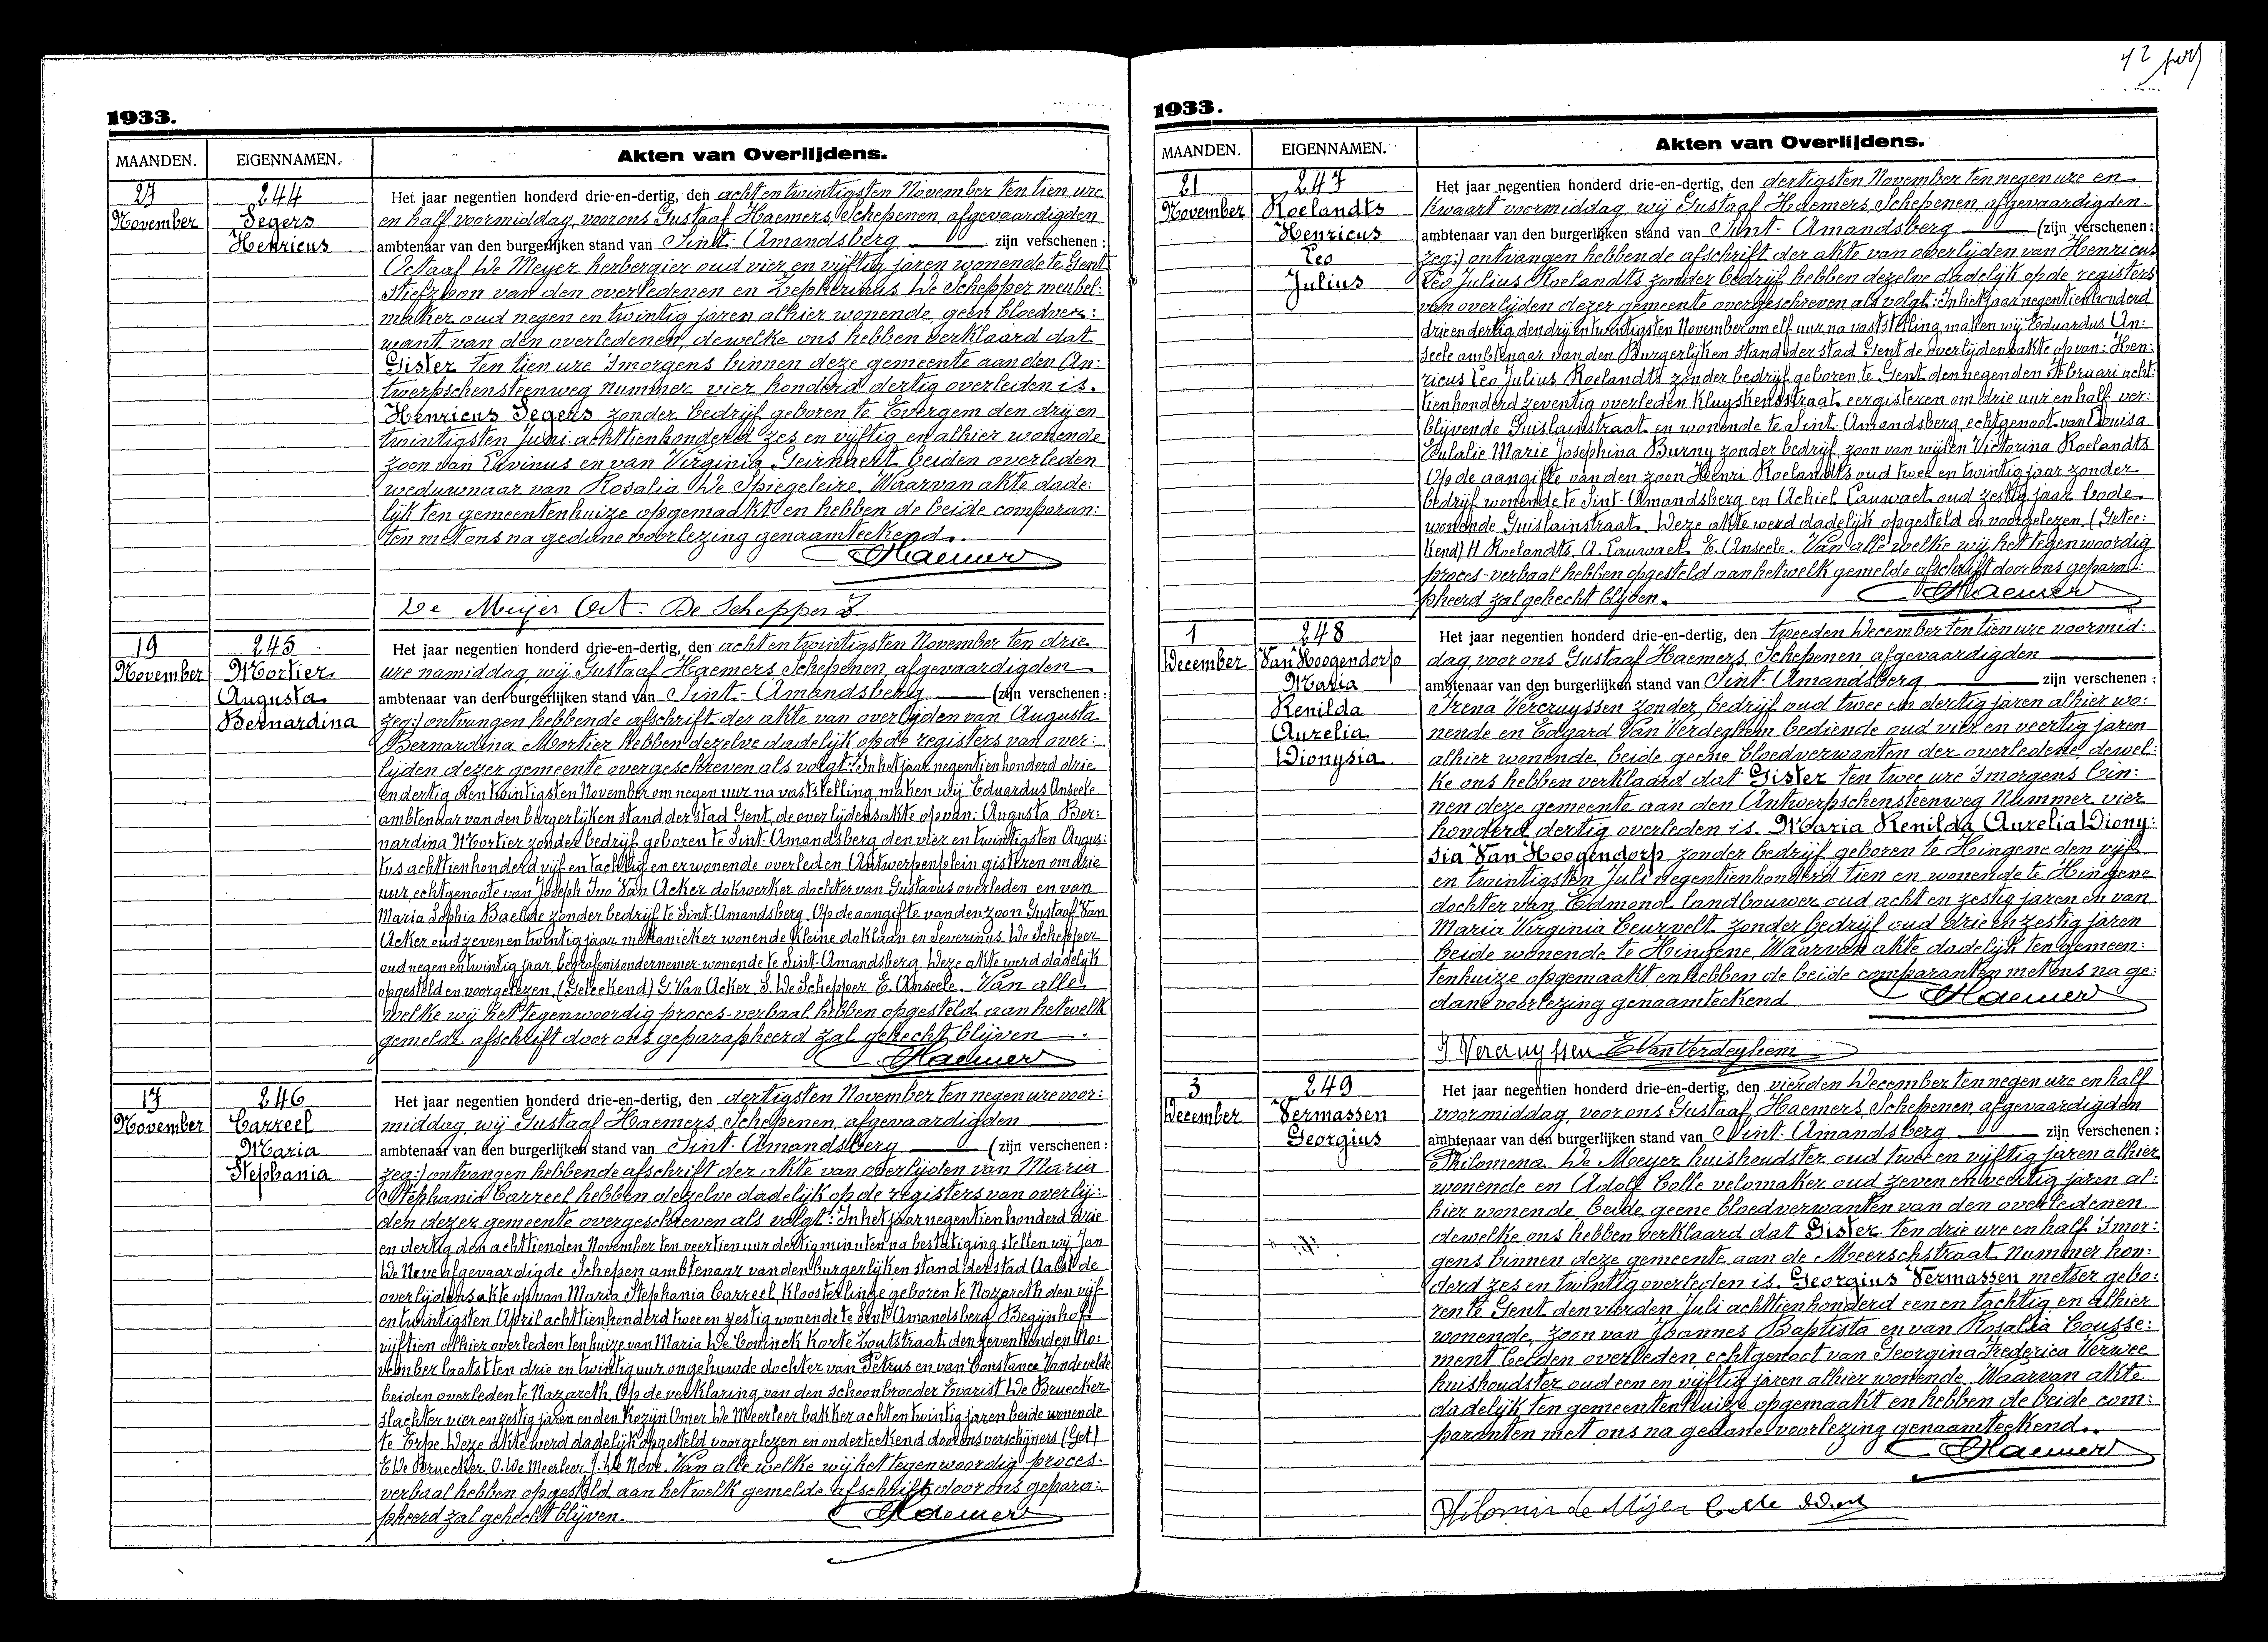 42
1933.
MAANDEN.
EIGENNAMEN.
Akten van Overlijdens.
27
November
244
Segers
Henricus
Het jaar negentien honderd drie-en-dertig, den acht en twintigsten November ten tien ure
en half voormiddag, voor ons Gustaaf Haemers, Schepenen, afgevaardigden
ambtenaar van den burgerlijken stand van Sint-Amandsberg zijn verschenen:
Octaaf De Meyer herbergier oud vier en vijftig jaren wonende te Gent
stiefzoon van den overledenen en Zepherinus De Schepper meubel:
maker oud negen en twintig jaren alhier wonende, geen bloedver:
want van den overledenen, dewelke ons hebben verklaard dat
Gister ten tien ure 's morgens binnen deze gemeente aan den An:
twerpschensteenweg nummer vier honderd dertig overleden is.
Henricus Segers zonder bedrijf geboren te Evergem den drij en
twintigsten Juni achttienhonderd zes en vijftig en alhier wonende
zoon van Livinus en van Virginia Geirnaert beiden overleden
weduwnaar van Rosalia De Spiegeleire. Waarvan akte dade:
lijk ten gemeentenhuize opgemaakt en hebben de beide comparan:
ten met ons na gedane voorlezing genaamteekend.
Haemers
De Meijer Oct. De Schepper Z.
19
November
245
Mortier
Augusta
Bernardina
Het jaar negentien honderd drie-en-dertig, den acht en twintigsten November ten drie
ure namiddag, wij Gustaaf Haemers, Schepenen, afgevaardigden
ambtenaar van den burgerlijken stand van Sint-Amandsberg (zijn verschenen:
zeg:) ontvangen hebbende afschrift der akte van overlijden van Augusta
Bernardina Mortier hebben dezelve dadelijk op de registers van over:
lijden dezer gemeente overgeschreven als volgt: In het jaar negentienhonderd drie
en dertig den twintigsten November om negen uur na vaststelling maken wij Eduardus Anseele
ambtenaar van den burgerlijken stand der stad Gent, de overlijdensakte op van: Augusta Ber:
nardina Mortier zonder bedrijf geboren te Sint-Amandsberg den vier en twintigsten Augus:
tus achttienhonderd vijf en tachtig en er wonende overleden Antwerpenplein gisteren om drie
uur, echtgenoote van Joseph Ivo Van Acker dokwerker dochter van Gustavus overleden en van
Maria Sophia Baelde zonder bedrijf te Sint-Amandsberg. Op de aangifte van den zoon Gustaaf Van
Acker oud zeven en twintig jaar mekanieker wonende Kleine doklaan en Severinus De Schepper
oud negen en twintig jaar, begrafenisondernemer wonende te Sint-Amandsberg. Deze akte werd dadelijk
opgesteld en voorgelezen. (Geteekend) G. Van Acker S. De Schepper, E. Anseele. Van alle
welke wij het tegenwoordig proces-verbaal hebben opgesteld aan hetwelk
gemelde afschrift door ons geparapheerd zal gehecht blijven.
Haemers
17
November
246
Carreel
Maria
Stephania
Het jaar negentien honderd drie-en-dertig, den dertigsten November ten negen ure voor:
middag wij Gustaaf Haemers, Schepenen, afgevaardigden
ambtenaar van den burgerlijken stand van Sint-Amandsberg (zijn verschenen:
zeg:) ontvangen hebbende afschrift der akte van overlijden van Maria
Stephania Carreel hebben dezelve dadelijk op de registers van overlij:
den dezer gemeente overgeschreven als volgt: In het jaar negentienhonderd drie
en dertig den achttienden November ten veertien uur dertig minuten na bestatiging stellen wij, Jan
De Neve afgevaardigde Schepen ambtenaar van den burgerlijken stand der stad Aalst de
overlijdensakte op van Maria Stephania Carreel, Kloosterlinge geboren te Nazareth den vijf
en twintigsten April achttienhonderd twee en zestig wonende te Sint Amandsberg Begijnhof
vijftien alhier overleden ten huize van Maria De Coninck Korte Zoutstraat den zeventienden No:
vember laatst ten drie en twintig uur ongehuwde dochter van Petrus en van Constance Vandevelde
beiden overleden te Nazareth. Op de verklaring van den schoonbroeder Evarist De Bruecker
slachter vier en zestig jaren en den Kozijn Omer De Meerleer bakker acht en twintig jaren beide wonende
te Erpe. Deze akte werd dadelijk opgesteld voorgelezen en onderteekend door ons verschijners (Get)
E. De Bruecker, O. De Meerleer J. De Neve. Van alle welke wij het tegenwoordig proces-
verbaal hebben opgesteld aan hetwelk gemelde afschrift door ons gepara:
pheerd zal gehecht blijven.
Haemers
1933.
MAANDEN.
EIGENNAMEN.
Akten van Overlijdens.
21
November
247
Roelandts
Henricus
Leo
Julius
Het jaar negentien honderd drie-en-dertig, den dertigsten November ten negen ure en
kwaart voormiddag, wij Gustaaf Haemers, Schepenen, afgevaardigden
ambtenaar van den burgerlijken stand van Sint-Amandsberg (zijn verschenen:
zeg:) ontvangen hebbende afschrift der akte van overlijden van Henricus
Leo Julius Roelandts zonder bedrijf hebben dezelve dadelijk op de registers
van overlijden dezer gemeente overgeschreven als volgt: In het jaar negentienhonderd
drie en dertig, den drij en twintigsten November om elf uur na vaststelling, maken wij Eduardus An:
seele ambtenaar van den Burgerlijken stand der stad Gent de overlijdensakte op van: Hen:
ricus Leo Julius Roelandts zonder bedrijf geboren te Gent den negenden Februari acht:
tienhonderd zeventig overleden Kluyskensstraat eergisteren om drie uur en half ver:
blijvende Guislainstraat en wonende te Sint-Amandsberg echtgenoot van Louisa
Eulalie Marie Josephina Burny zonder bedrijf, zoon van wijlen Victorina Roelandts
Op de aangifte van den zoon Henri Roelandts oud twee en twintig jaar zonder
bedrijf wonende te Sint-Amandsberg en Achiel Lauwaet oud zestig jaar bode
wonende Guislainstraat. Deze akte werd dadelijk opgesteld en voorgelezen (Getee:
kend) H Roelandts, A. Lauwaet, E. Anseele. Van alle welke wij het tegenwoordig
proces-verbaal hebben opgesteld aan hetwelk gemelde afschrift door ons gepara:
pheerd zal gehecht blijven.
Haemers
1
December
248
Van Hoogendorp
Maria
Renilda
Aurelia
Dionysia
Het jaar negentien honderd drie-en-dertig, den tweeden December ten tien ure voormid:
dag, voor ons Gustaaf Haemers, Schepenen afgevaardigden
ambtenaar van den burgerlijken stand van Sint-Amandsberg zijn verschenen:
Irena Vercruyssen zonder bedrijf oud twee en dertig jaren alhier wo:
nende en Edgard Van Verdeghem bediende oud vier en veertig jaren
alhier wonende, beide geene bloedverwanten der overledene, dewel:
ke ons hebben verklaard dat Gister ten twee ure 's morgens bin:
nen deze gemeente aan den Antwerpschensteenweg Nummer vier
honderd dertig overleden is. Maria Renilda Aurelia Diony:
sia Van Hoogendorp zonder bedrijf geboren te Hingene den vijf
en twintigsten Juli negentienhonderd tien en wonende te Hingene
dochter van Edmond landbouwer oud acht en zestig jaren en van
Maria Virginia Ceurvelt zonder bedrijf oud drie en zestig jaren
beide wonende te Hingene. Waarvan akte dadelijk ten gemeen:
tenhuize opgemaakt en hebben de beide comparanten met ons na ge:
dane voorlezing genaamteekend
Haemers
I Vercruyssen E Van Verdeghem
3
December
249
Vermassen
Georgius
Het jaar negentien honderd drie-en-dertig, den vierden December ten negen ure en half
voormiddag, voor ons Gustaaf Haemers, Schepenen, afgevaardigden
ambtenaar van den burgerlijken stand van Sint-Amandsberg zijn verschenen:
Philomena De Meeyer huishoudster oud twee en vijftig jaren alhier
wonende en Adolf Colle velomaker oud zeven en veertig jaren al:
hier wonende, beide geene bloedverwanten van den overledenen
dewelke ons hebben verklaard dat Gister ten drie ure en half 's mor:
gens binnen deze gemeente aan de Meerschstraat nummer hon:
derd zes en twintig overleden is. Georgius Vermassen metser gebo:
ren te Gent den vierden Juli achttienhonderd een en tachtig en alhier
wonende, zoon van Joannes Baptista en van Rosalia Cousse:
ment beiden overleden, echtgenoot van Georgina Frederica Verwee
huishoudster oud een en vijftig jaren alhier wonende. Waarvan akte
dadelijk ten gemeentenhuize opgemaakt en hebben de beide com:
paranten met ons na gedane voorlezing genaamteekend.
Haemers
Filomin de Mijer Colle Adolf